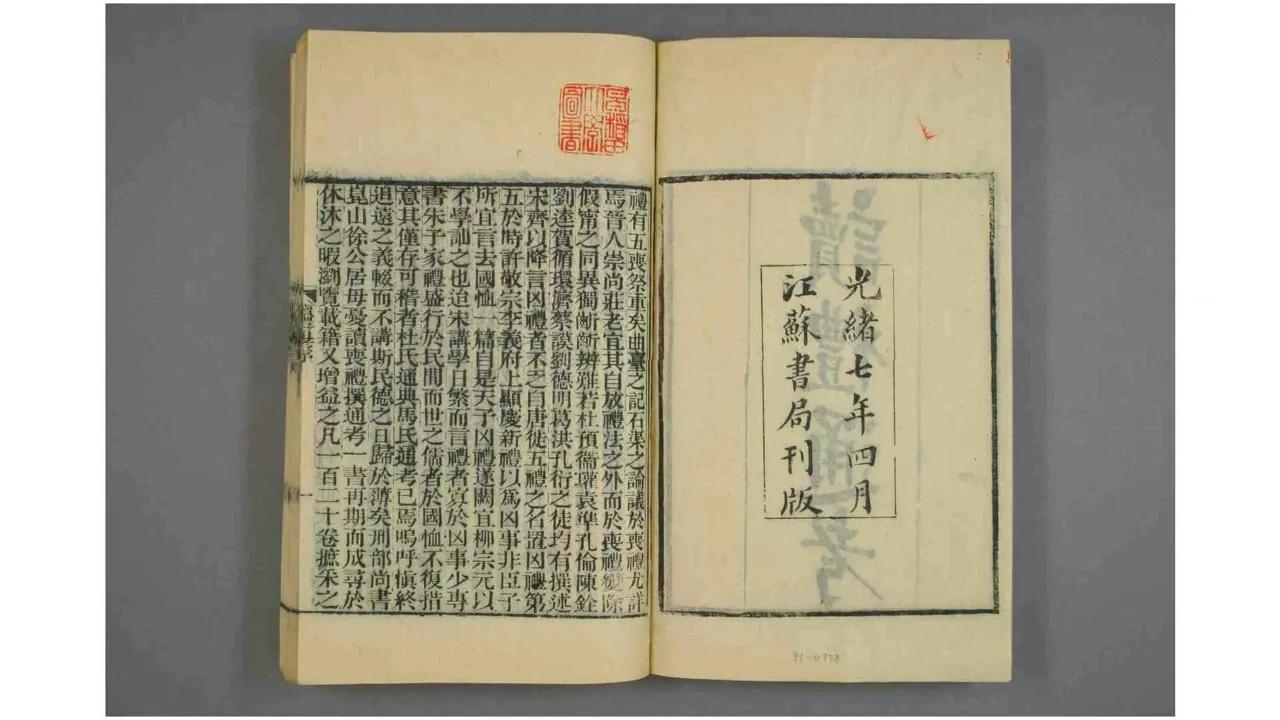 光緒七年四月
江蘇書局刊版
讀禮通考
91-0778
禮有五喪祭重矣曲臺之記石渠之論議於喪禮尤詳
焉晉人崇尚莊老宜其自放禮法之外而於喪禮變除
假甯之同異獨齗齗辨難若杜預衞瓘袁準孔倫陳銓
劉逵賀循環濟蔡謨劉德明葛洪孔衍之徒均有撰述
宋齊以降言凶禮者不乏自唐徙五禮之名置凶禮第
五於時許敬宗李義府上顯慶新禮以爲凶事非臣子
所宜言去國恤一篇自是天子凶禮遂闕宜柳宗元以
不學訕之也迨宋講學日繁而言禮者寡於凶事少專
書朱子家禮盛行於民間而世之儒者於國恤不復措
意其僅存可稽者杜氏通典馬氏通考已焉嗚呼愼終
追遠之義輟而不講斯民德之日歸於薄矣刑部尚書
崑山徐公居母憂讀喪禮撰通考一書再期而成尋於
休沐之暇瀏覽載籍又增益之凡一百二十卷摭采之
一